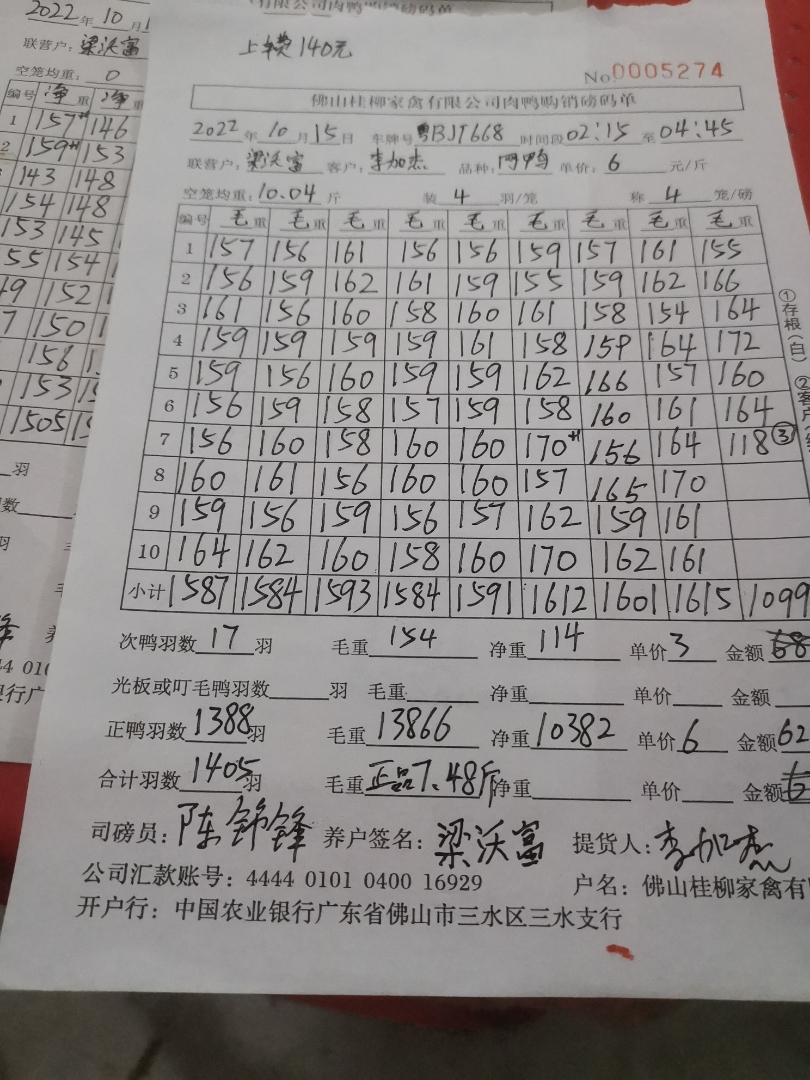 有限公司肉鸭购销磅码单
2022年10月1
联营户:梁沃富
空笼均重:0
编号 净重 净重
1 157+1 146
2 159+1 153
3 143 148
154 148
153 145
55 154
49 152
7 150
156
153
1505
羽
上车费140元
No 0005274
佛山桂柳家禽有限公司肉鸭购销磅码单
2022年10月15日 车牌号 粤BJT668 时间段 02:15 至 04:45
联营户:梁沃富 客户:李加杰 品种: 单价:6 元/斤
空笼均重:10.04斤 装4羽/笼 称4笼/磅
编号 毛重 毛重 毛重 毛重 毛重 毛重 毛重 毛重 毛重
1 157 156 161 156 156 159 157 161 155
2 156 159 162 161 159 155 159 162 166
3 161 156 160 158 160 161 158 154 164
4 159 159 159 159 161 158 159 164 172
5 159 156 160 159 159 162 166 157 160
6 156 159 158 157 159 158 160 161 164
7 156 160 158 160 160 170+1 156 164 118③
8 160 161 156 160 160 157 165 170
9 159 156 159 156 157 162 159 161
10 164 162 160 158 160 170 162 161
小计 1587 1584 1593 1584 1591 1612 1601 1615 1099
①存根(白) ②客户(
次鸭羽数17羽 毛重154 净重114 单价3 金额
光板或叮毛鸭羽数 羽 毛重 净重 单价 金额
正鸭羽数1388羽 毛重13866 净重10382 单价6 金额62
合计羽数1405羽 毛重正品7.48斤 净重 单价 金额
司磅员:陈锦锋 养户签名:梁沃富 提货人:李加杰
公司汇款账号:4444 0101 0400 16929 户名:佛山桂柳家禽有
开户行:中国农业银行广东省佛山市三水区三水支行